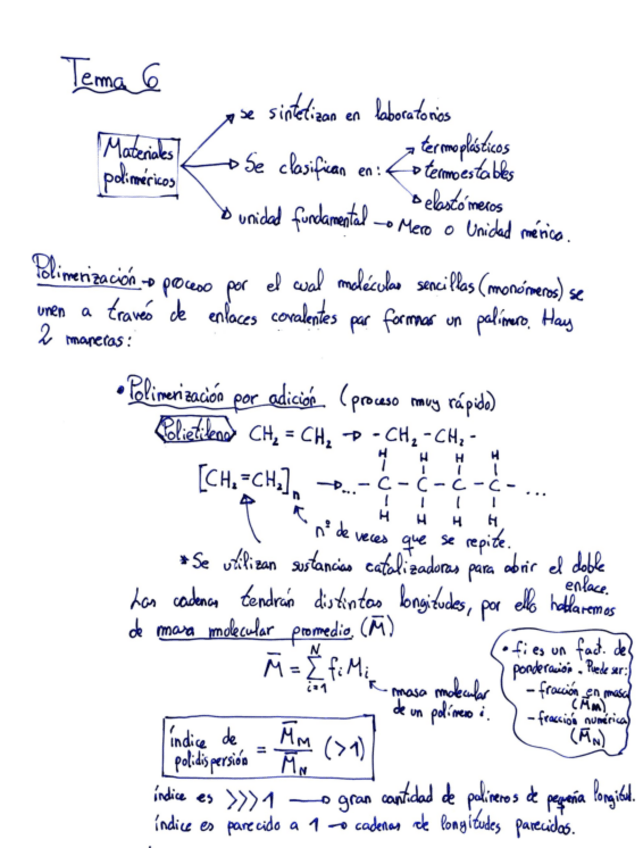 Tema 6
se sintetizan en laboratorios
Materiales poliméricos
Se clasifican en:
termoplásticos
termoestables
elastómeros
unidad fundamental → Mero o Unidad mérica.
Polimerización → proceso por el cual moléculas sencillas (monómeros) se
unen a través de enlaces covalentes par formar un polímero. Hay
2 maneras:
• Polimerización por adición (proceso muy rápido)
Polietileno CH₂ = CH₂ → - CH₂ - CH₂ -
H H H H
[CH₂=CH₂]n → ... - C - C - C - C - ...
H H H H
nº de veces que se repite.
* Se utilizan sustancias catalizadoras para abrir el doble
enlace.
Las cadenas tendrán distintas longitudes, por ello hablaremos
de masa molecular promedio (M̄)
M̄ = Σ fi Mi
N
i=1
masa molecular
de un polímero i.
• fi es un fact. de
ponderación. Puede ser:
- fracción en masa
(M̄M)
- fracción numérica
(M̄N)
índice de polidispersión = M̄M / M̄N (>1)
índice es >>>1 → gran cantidad de polímeros de pequeña longitud.
índice es parecido a 1 → cadenas de longitudes parecidas.